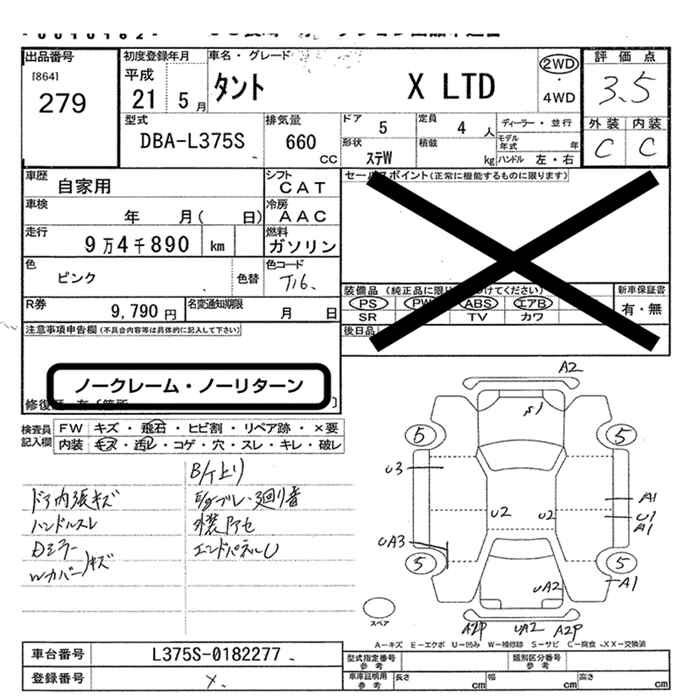 出品番号 初度登録年月 車名・グレード 2WD 評価点
[864] 平成 タント X LTD ・ 3.5
279 21 5月 4WD
型式 排気量 ドア 定員 ディーラー・並行 外装 内装
DBA-L375S 660 CC 5 4 人 モデル年式 年 C C
形状 積載
ステW kg ハンドル 左・右
車歴 シフト セールスポイント(正常に機能するものに限ります)
自家用 CAT
車検 冷房
年 月( 日) AAC
走行 燃料
9万4千890 km ガソリン
色 色コード
ピンク 色替 T16. 装備品 (純正品に限り けてください) 新車保証書
R券 名変通知期限 PS PW ABS エアB 有・無
9,790円 月 日 SR TV カワ
注意事項申告欄(不具合内容等は具体的に記入して下さい) 後日品
ノークレーム・ノーリターン
修復歴
検査員記入欄 FW キズ・飛石・ヒビ割・リペア跡・×要
内装 キズ・汚レ・コゲ・穴・スレ・キレ・破レ
ドア内張キズ
ハンドルスレ
Dミラー
Wカバーキズ
エンドパネルU
A2
5 5
U3
A1
U2 U2 U1
A1
UA3
5 5
UA2 A1
スペア
A2P UA2 A2P
A-キズ E-エクボ U-凹み W-補修跡 S-サビ C-腐食 XX-交換済
車台番号 L375S-0182277 型式指定番号 参考 類別区分番号 参考
登録番号 車庫証明用 参考 長さ cm 幅 cm 高さ cm